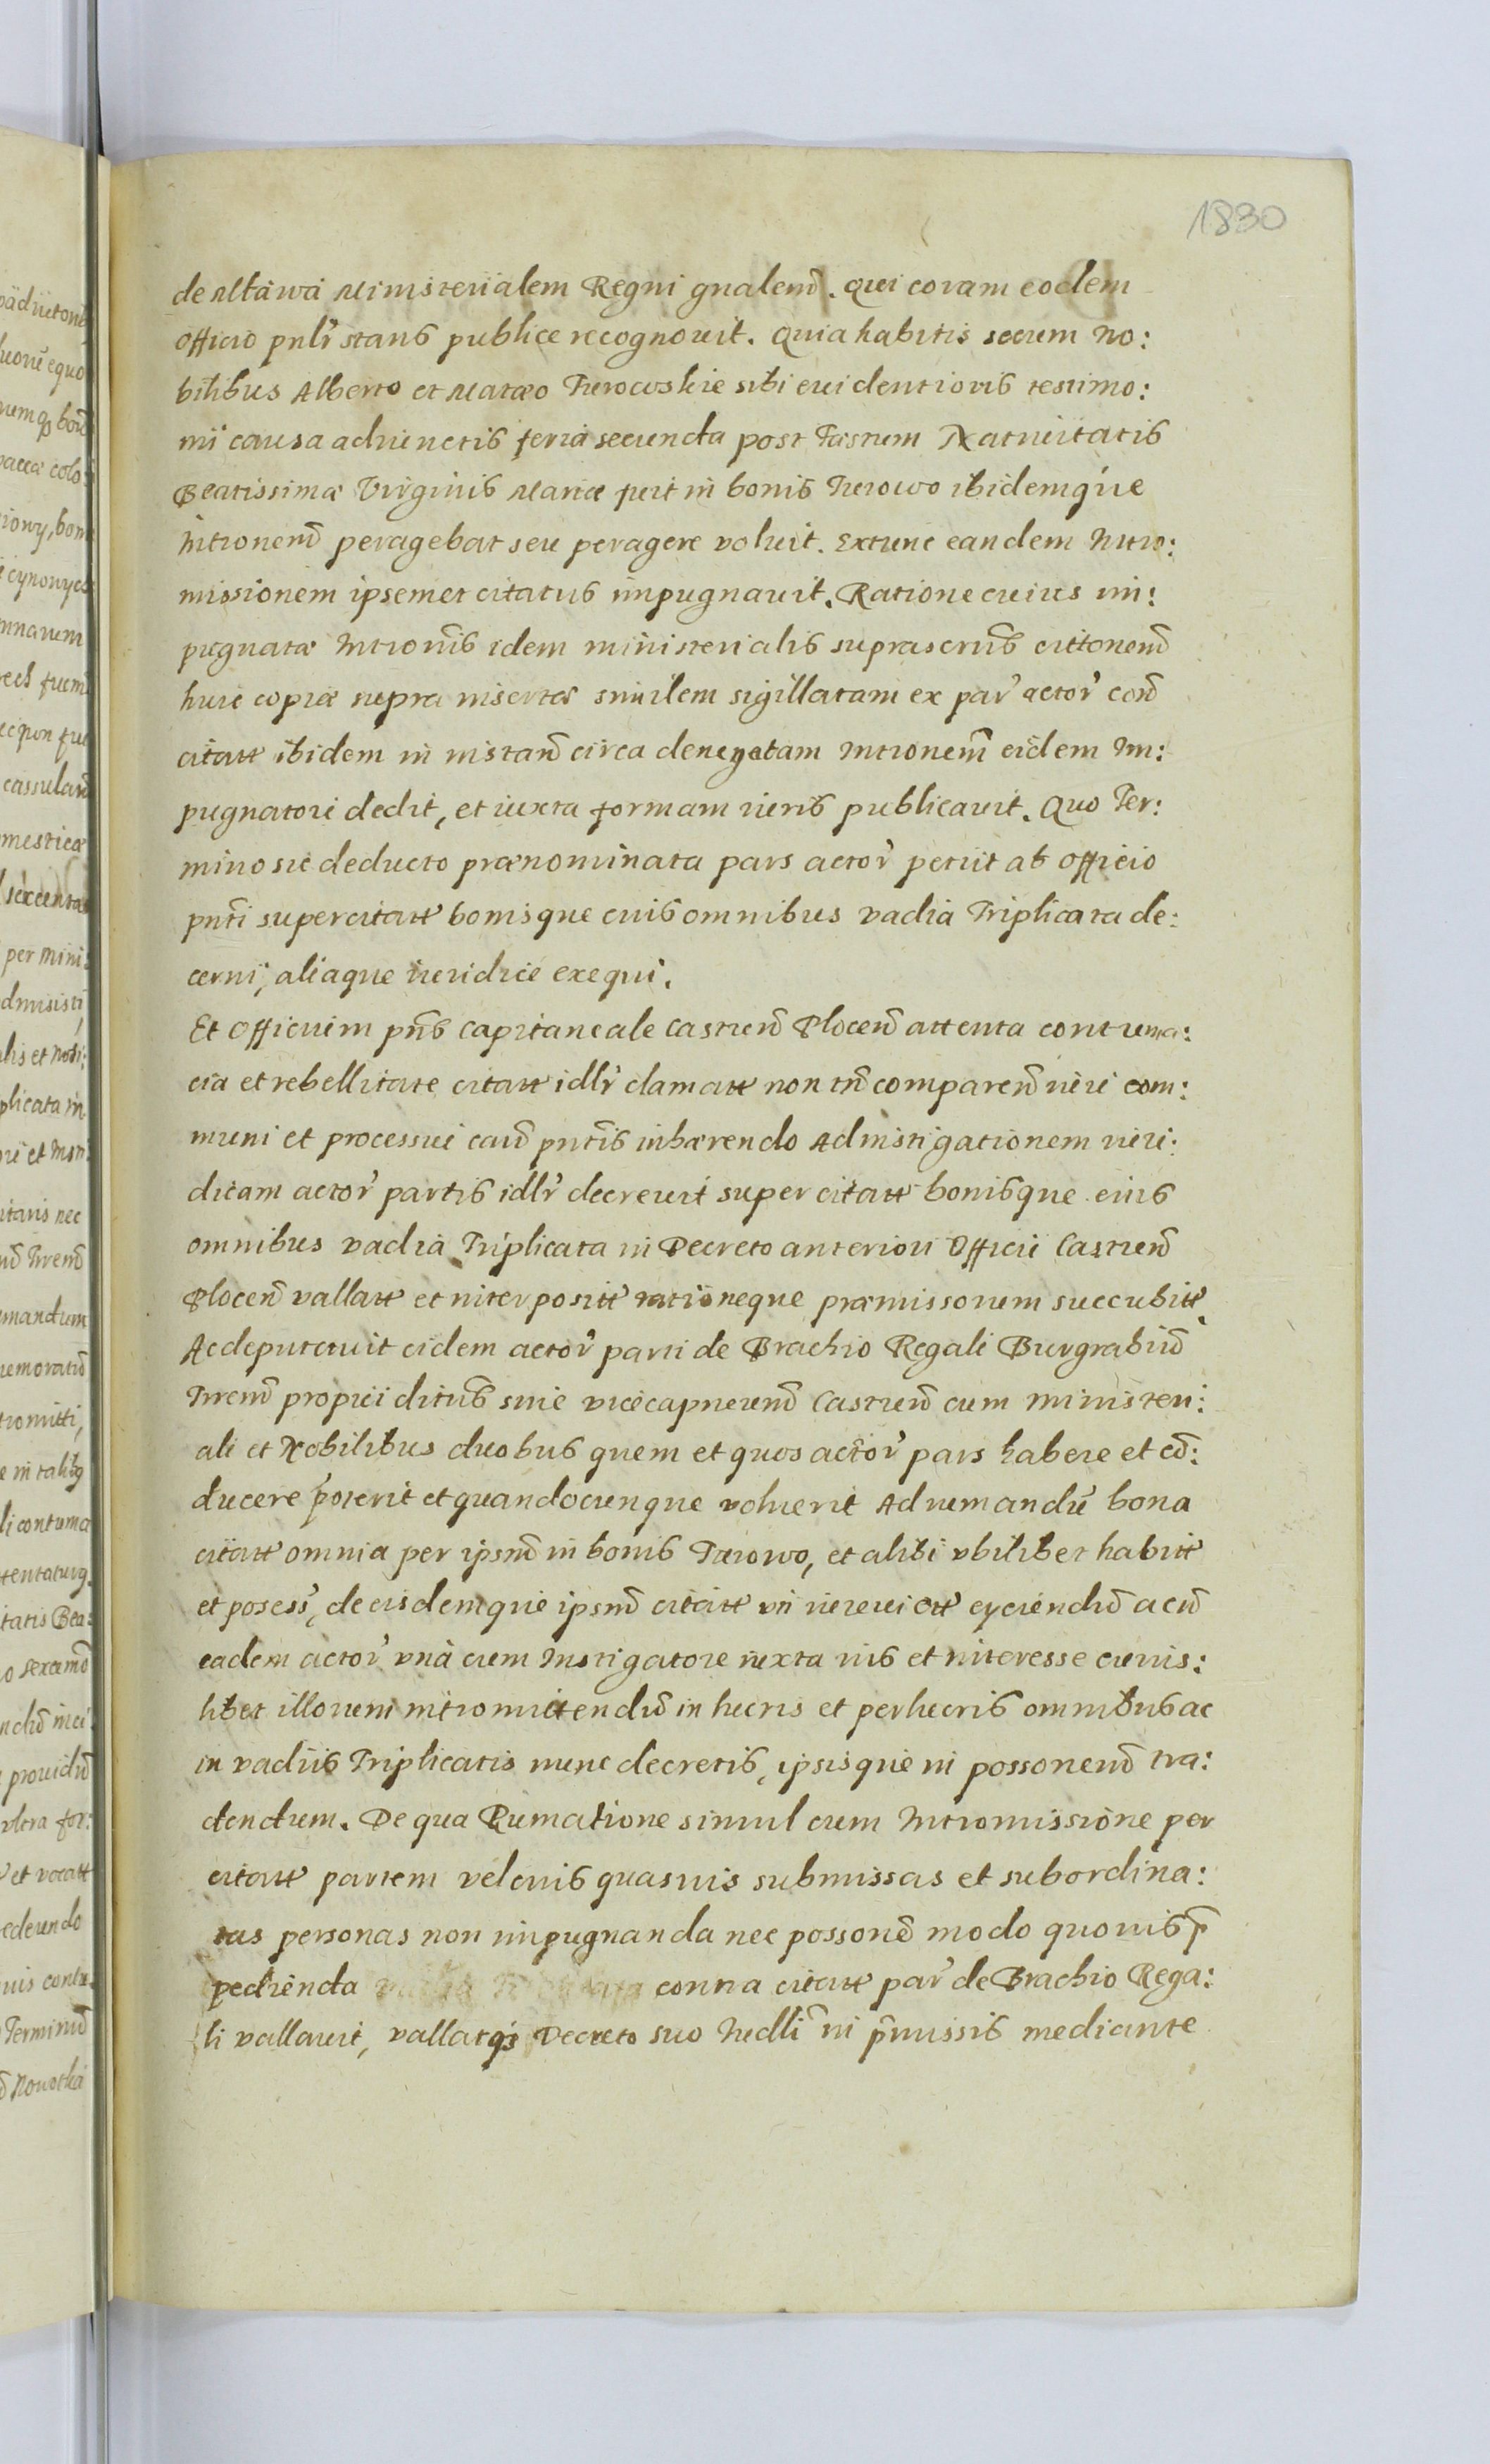 1830
de Mława Ministerialem Regni gnalem̃. Qui coram eodem
Officio pnlr̃ stans publice recognouit. Quia habitis secum No:
bilibus Alberto et Matæo Turowskie sibi euidentioris testimo:
nii causa adiunctis feria secunda post Fæstum Natiuitatis
Beatissimæ Virginis Mariæ fuit in bonis Turowo ibidemque
Intronem̃ peragebat seu peragere voluit. Extunc eandem Intro:
missionem ipsemet citatus impugnauit. Ratione cuius im:
pugnatæ Intronĩs idem ministerialis suprascrũs cittonem̃
huic copiæ supra insertæ similem sigillatam ex par̃ actor̃ con̄
citatt̃ ibidem in instan̄ circa denegatam Intronem̃ eidem Im:
pugnatori dedit, et iuxta formam iuris publicauit. Quo Ter:
mino sic deducto prænominata pars actor̃ petiit ab Officio
pnt̃i super citatt̃ bonisque euis omnibus vadia Triplicata de:
cerni, aliaque iuridice exequi.
Et Officium pñs Capitaneale Castren̄ Plocen̄ attenta contuma:
cia et rebellitate citatt̃ idlr̃ clamatt̃ non tñ comparen̄ iuri com:
muni et processui caũ pntĩs inhærendo Ad instigationem iuri:
dicam actor̃ partis idlr̃ decreuit super citatt̃ bonisque eius
omnibus vadia Triplicata in Decreto anteriori Officii Castren̄
Plocen̄ vallatt̃ et interpositt̃ rationeque præmissorum succubitt̃
Ac deputauit eidem actor̃ parti de Brachio Regali Burgrabiũ
Iuren̄ propriei ditũs siue vicecapneum̃ Castren̄ cum ministeri:
ali et Nobilibus duobus quem et quos actor̃ pars habere et cõ:
ducere poterit et quandocunque voluerit Ad rumandũ bona
citatt̃ omnia per ipsm̃ in bonis Turowo, et alibi vbilibet habitt̃
et posess̃, de eisdemque ipsm̃ citatt̃ eyciendũ ac in̄
eadem actor̃ vnà cum Instigatore iuxta ius et interesse cuius:
libet illorum intromittendũ in lucris et perlucris omnibus ac
in vadiis Triplicatis nunc decretis, ipsisque in possonem̃ tra:
dendum. De qua Rumatione simul cum Intromissione per
citatt̃ partem vel euis quasuis submissas et subordina:
tas personas non impugnanda nec possonẽ modo quouis p̃
pedienda contra citatt̃ par̃ de Brachio Rega:
li vallauit, vallatqз Decreto suo in p̃missis mediante